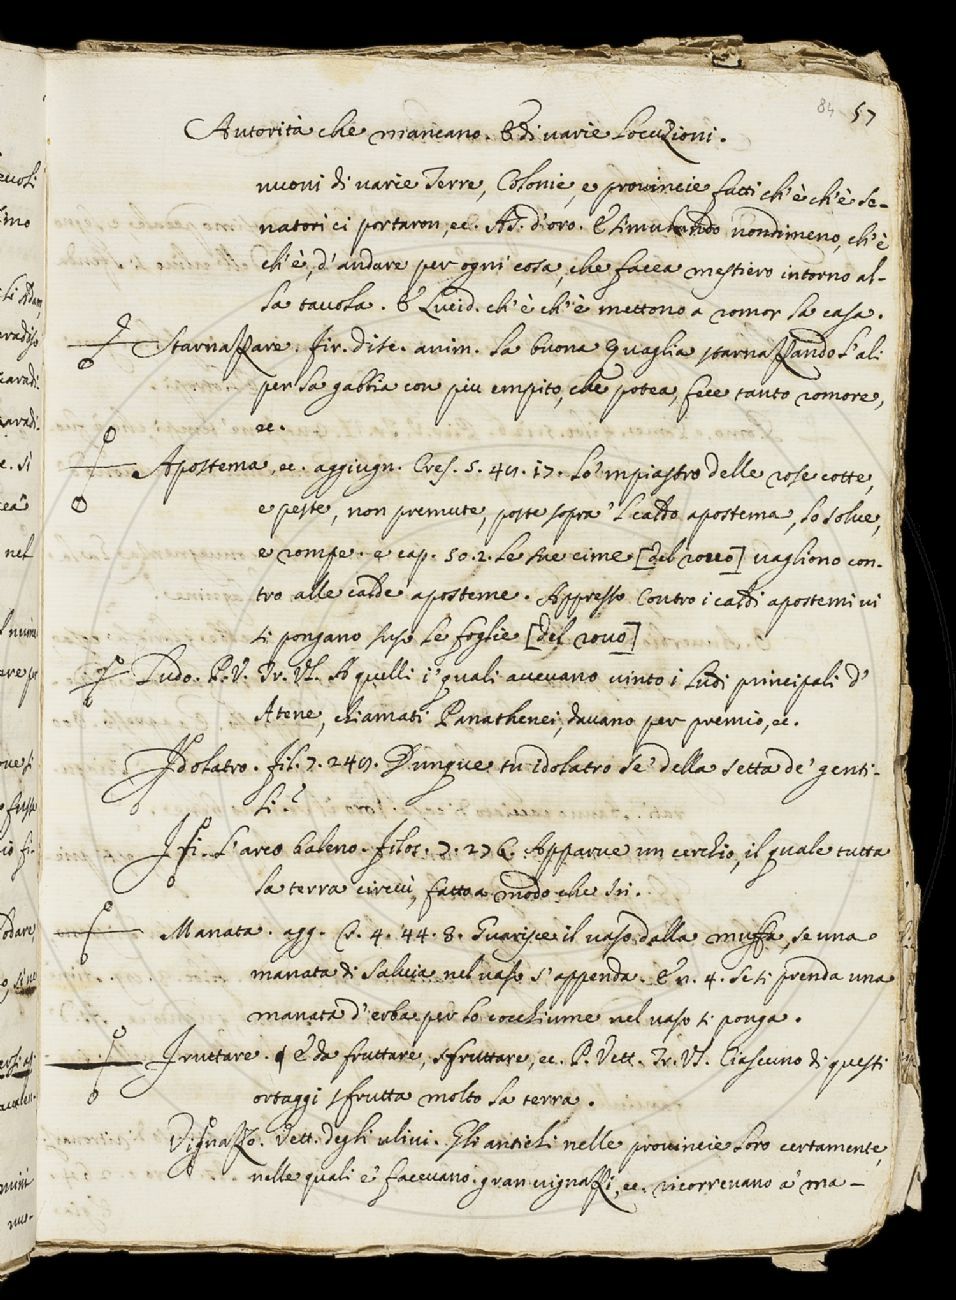 84 57
Autorità che mancano. E di varie Locuzioni.
nuoni di varie Terre, Colonie, e provincie fatti ch'è ch'è se-
natori ci portaron, ec. As. d'oro. E simulando nondimeno, ch'è
ch'è, d'andare per ogni cosa, che facea mestiero intorno al-
la tavola. E Lucid. ch'è ch'è mettono a romor la casa.
Starnazzare. Fir. disc. anim. La buona Quaglia starnazzando l'ali
per la gabbia con piu empito, che potea, fece tanto romore,
ec.
Apostema, ec. aggiugn. Cres. 5. 49. 17. Lo 'mpiastro delle rose cotte,
e peste, non premute, poste sopra 'l caldo apostema, lo solve,
e rompe. e cap. 50. 2. Le sue cime [del rovo] vagliono con-
tro alle calde aposteme. Appresso Contro i caldi apostemi vi
si pongano suso le foglie [del rovo]
Ludo. P. V. Tr. Vl. A quelli i quali avevano vinto i Ludi principali d'
Atene, chiamati Panathenei, davano per premio, ec.
Idolatro. Fil. 7. 249. Dunque tu idolatro se' della setta de' genti-
li?
Isi. L'arco baleno. Filoc. 7. 276. Apparve un cerchio, il quale tutta
la terra circuì, fatto a modo che Isi.
Manata. agg. Cr. 4. 44. 8. Guarisce il vaso dalla muffa, se una
manata di Salvia nel vaso s'appenda. E n. 4. Se ti prenda una
manata d'erba per lo cocchiume nel vaso si ponga.
Fruttare. E da fruttare, sfruttare, ec. P. Vett. Tr. Vl. Ciascuno di questi
ortaggi sfrutta molto la terra.
Vignazzo. Vett. degli ulivi. Gli antichi nelle provincie loro certamente,
nelle quali e' facevano gran vignazzi, ec. ricorrevano a' ma-